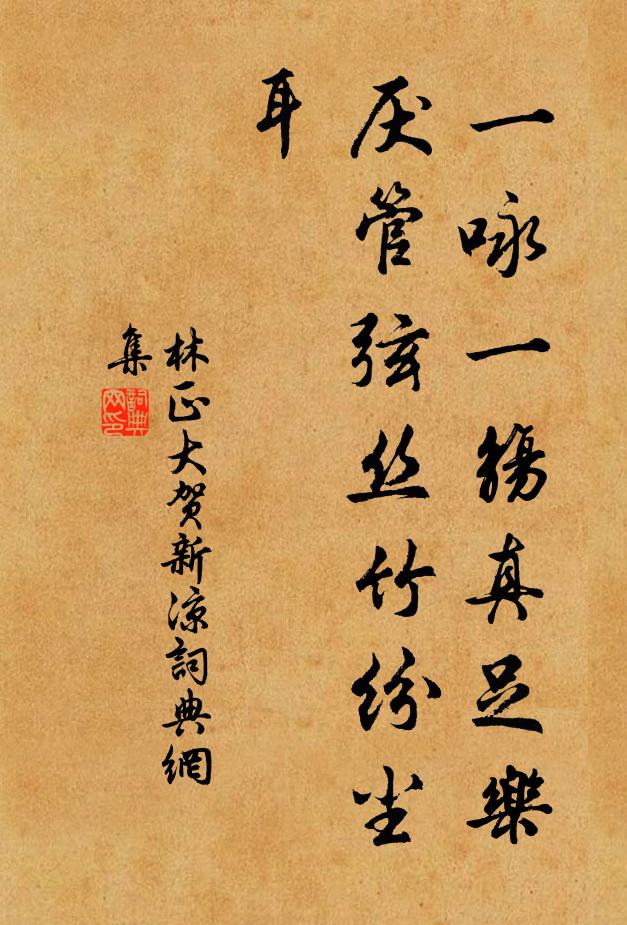 一咏一觞真足樂
厌管弦丝竹纷尘
耳
林正大贺新凉詞典網
集
詞典网印